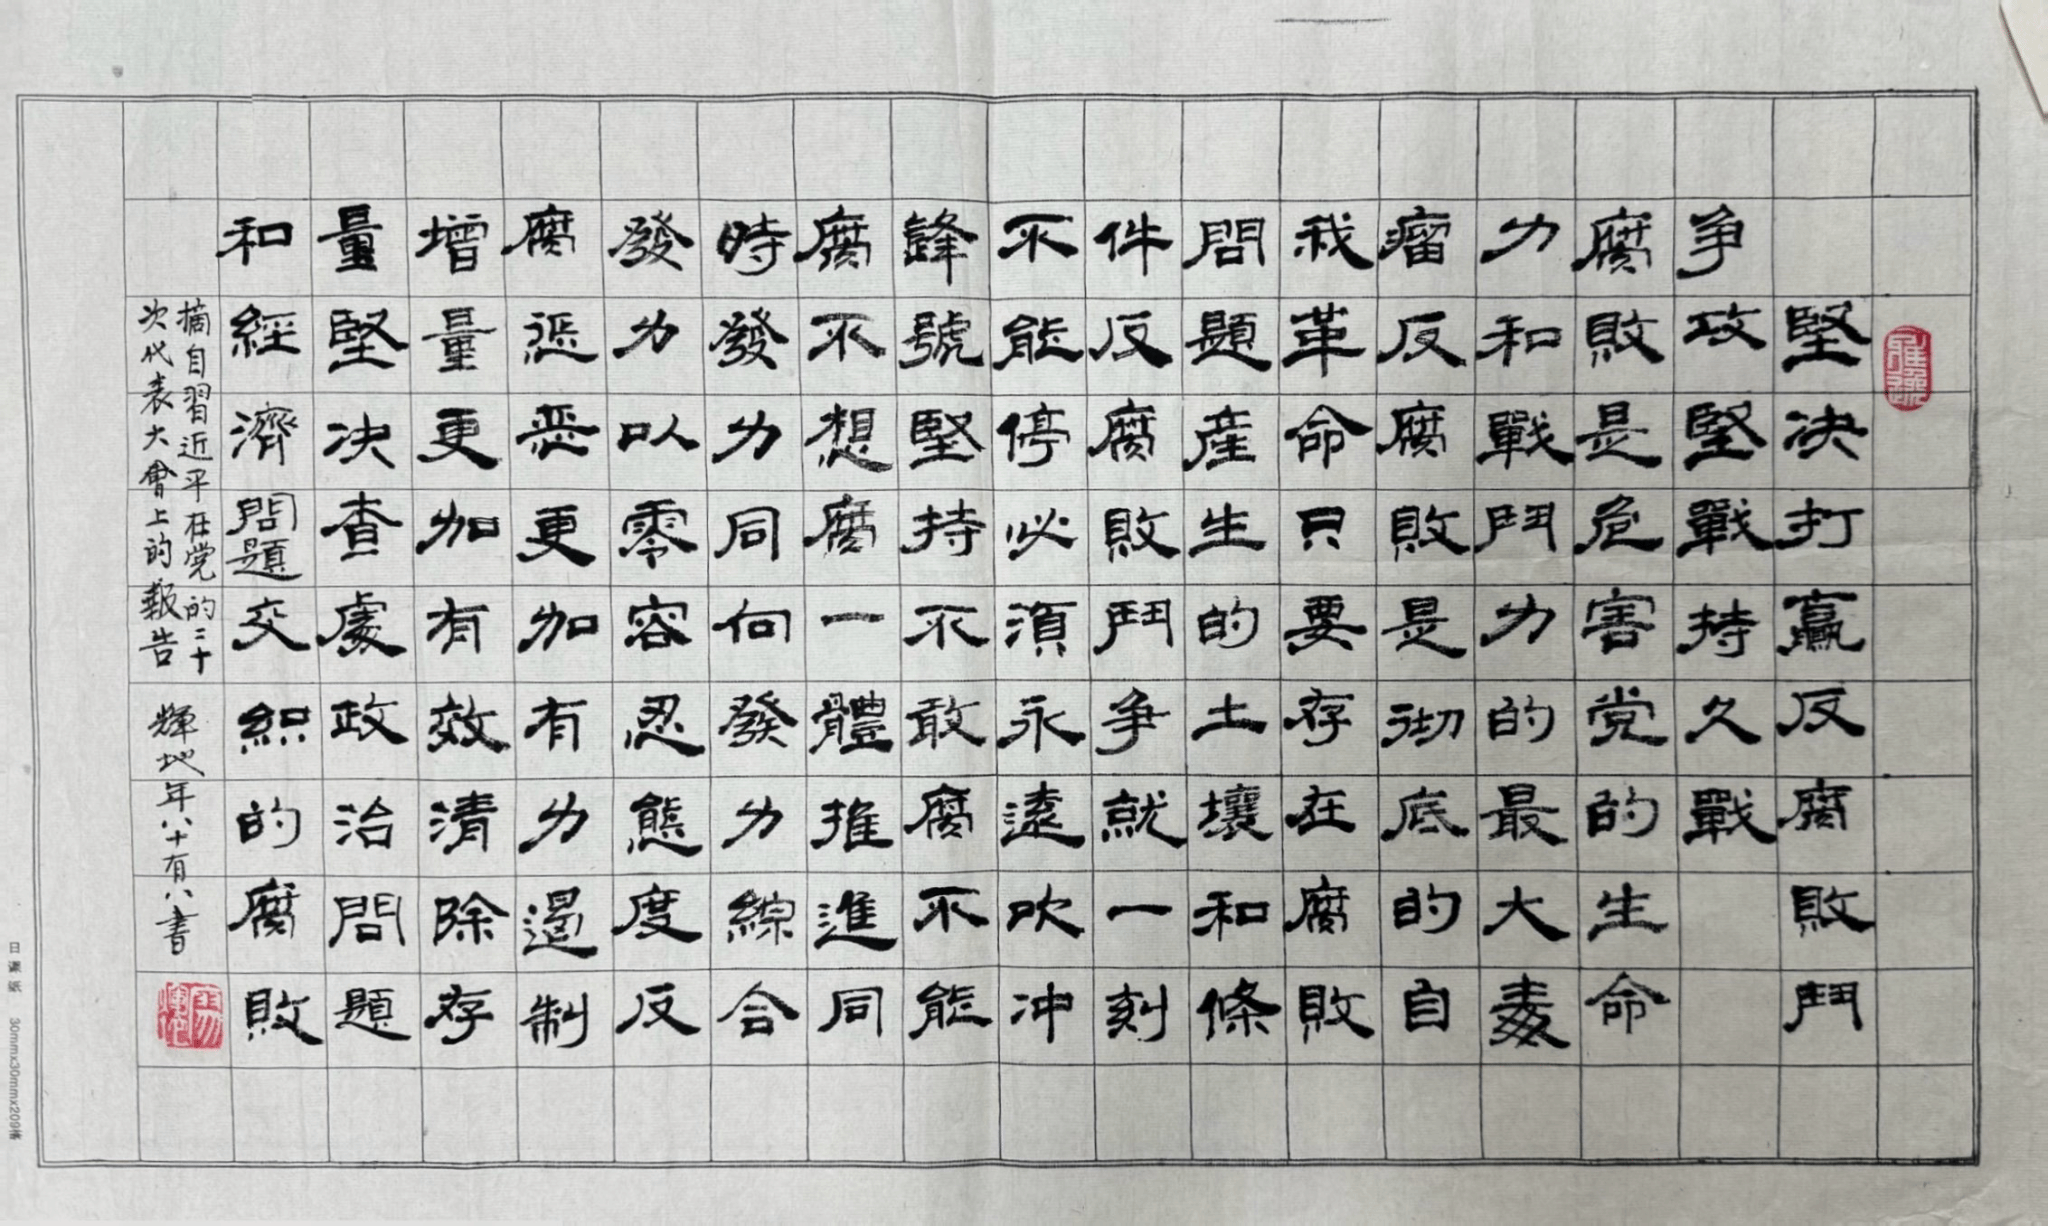 堅决打贏反腐敗鬥
争攻堅戰持久戰
腐敗是危害党的生命
力和戰鬥力的最大毒
瘤反腐敗是彻底的自
我革命只要存在腐敗
問題產生的土壤和條
件反腐敗鬥争就一刻
不能停必湏永遠吹冲
鋒號堅持不敢腐不能
腐不想腐一體推進同
時發力同向發力綜合
發力以零容忍態度反
腐惩恶更加有力遏制
增量更加有效清除存
量堅决查處政治問題
和經濟問題交織的腐敗
摘自習近平在党的二十
次代表大會上的報告 輝地年八十有八書
30mmx30mmx209格